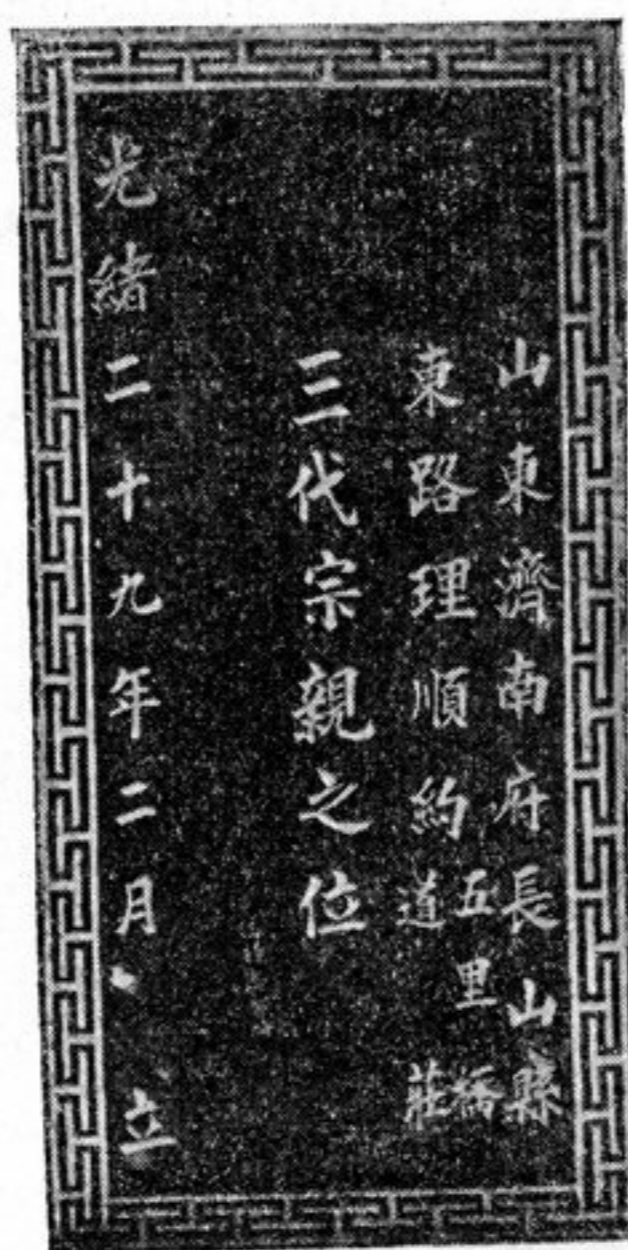 山東濟南府長山縣
東路理順約五里橋
道莊
三代宗親之位
光緒二十九年二月 立